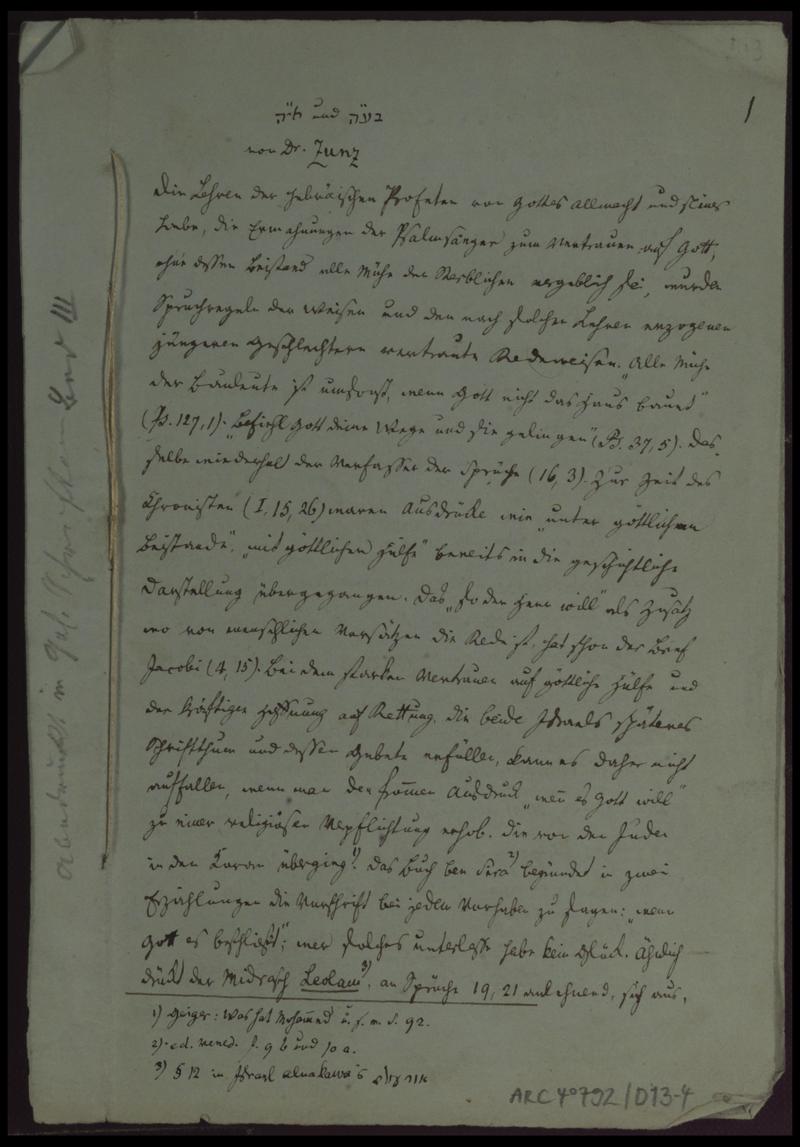 1
בע״ה und אי״ה
von Dr. Zunz
Die Lehren der hebräischen Profeten von Gottes Allmacht und seiner
Liebe, die Ermahnungen der Psalmsänger zum Vertrauen auf Gott,
ohne dessen Beistand alle Mühe der Sterblichen vergeblich sei, wurden
Spruchregeln der Weisen und den nach solchen Lehren erzogenen
jüngeren Geschlechtern vertraute Redeweisen. „Alle Mühe
der Bauleute ist umsonst, wenn Gott nicht das Haus bauet"
(Ps. 127,1). „Befiehl Gott deine Wege und sie gelingen" (Ps. 37, 5). Das-
selbe wiederholt der Verfasser der Sprüche (16, 3). Zur Zeit des
Chronisten (I, 15, 26) waren Ausdrücke wie „unter göttlichem
Beistande", „mit göttlicher Hülfe" bereits in die geschichtliche
Darstellung übergegangen. Das „so der Herr will" als Zusatz
wo von menschlichen Vorsätzen die Rede ist, hat schon der Brief
Jacobi (4, 15). Bei dem starken Vertrauen auf göttliche Hülfe und
der kräftigen Hoffnung auf Rettung, die beide Israels späteres
Schriftthum und dessen Gebete erfüllen, kann es daher nicht
auffallen, wenn man den frommen Ausdruck „wenn es Gott will"
zu einer religiösen Verpflichtung erhob, die von den Juden
in den Koran überging 1). Das Buch ben Sira 2) begründet in zwei
Erzählungen die Vorschrift bei jedem Vorhaben zu sagen: „wenn
Gott es beschließt"; wer solches unterlasse habe kein Glück. Ähnlich
drückt der Midrasch Leolam 3), an Sprüche 19, 21 anlehnend, sich aus,
1) Geiger: Was hat Mohammed u. s. w. S. 92.
2) ed. Vened. f. 9 b und 10 a.
3) § 12 in Israel Alnakawa's
Abgedruckt in Ges. Schriften Band III
ARC 4° 792/D13-4